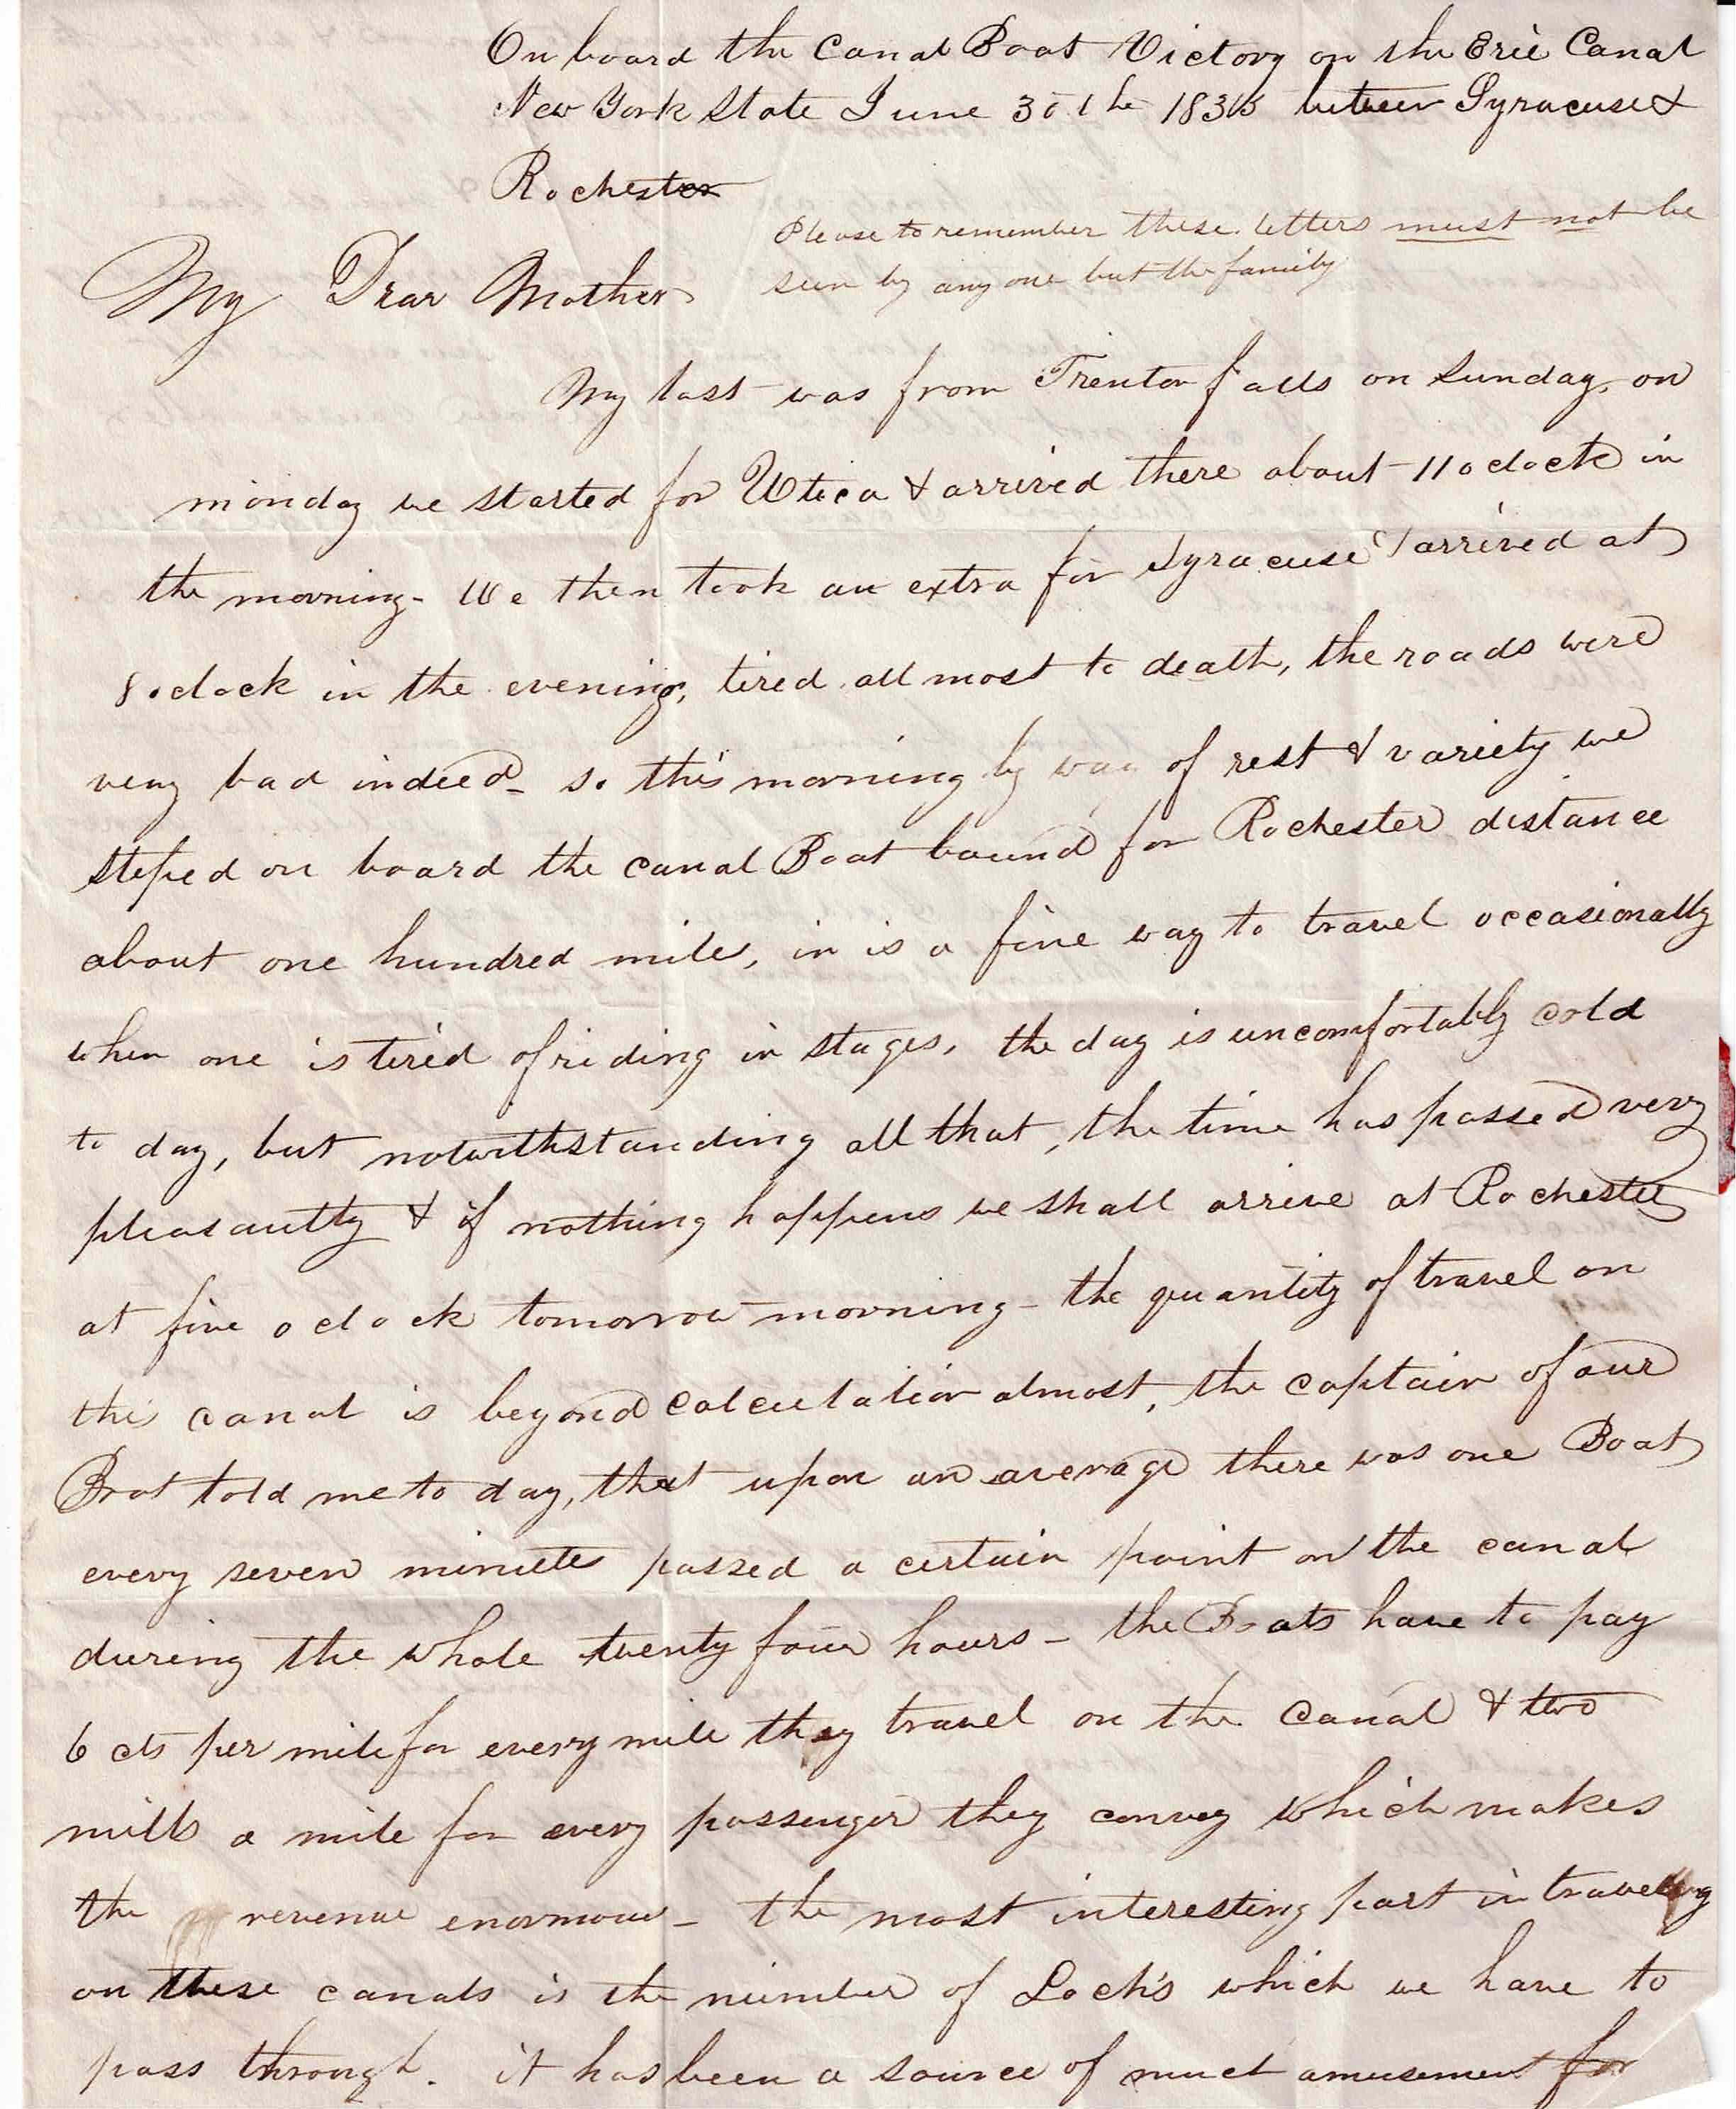 On board the Canal Boat Victory on the Erie Canal
New York State June 30th 1835 between Syracuse &
Rochester
Please to remember these letters must not be
seen by any one but the family
My Dear Mother
My last was from Trenton falls on Sunday, on
monday we started for Utica & arrived there about 11 oclock in
the morning - We then took an extra for Syracuse & arrived at
8 oclock in the evening, tired all most to death, the roads were
very bad indeed - so this morning by way of rest & variety we
steped on board the canal Boat bound for Rochester distance
about one hundred mile, in is a fine way to travel occasionally
when one is tired of riding in stages, the day is uncomfortably cold
to day, but notwithstanding all that, the time has passed very
pleasantly & if nothing happens we shall arrive at Rochester
at five oclock tomorrow morning - the quantity of travel on
this canal is beyond calculation almost, the captain of our
Boat told me to day, that upon an average there was one Boat
every seven minute passed a certain point on the canal
during the whole twenty four hours - the Boats have to pay
6 cts per mile for every mile they travel on the Canal & two
mills a mile for every passenger they convey which makes
the revenue enormous - the most interesting part in traveling
on these canals is the number of Lock's which we have to
pass through. it has been a source of much amusement for